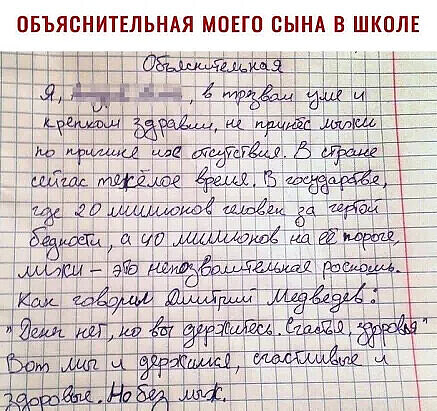 ОБЪЯСНИТЕЛЬНАЯ МОЕГО СЫНА В ШКОЛЕ
Объяснительная
Я, в трзвам уме и
крепком здравии, не принёс лыжи
по причине иос отсутствия. В стране
сейчас тяжёлое время. В государстве,
где 20 миллионов человек за чертой
бедности, а 40 миллионов на её пороге,
лыжи – это непозволительная роскошь.
Как говорил Дмитрий Медведев:
"Денег нет, но вы держитесь. Счастья, здоровья"
Вот мы и держимся, счастливые и
здоровые. Но без лыж.